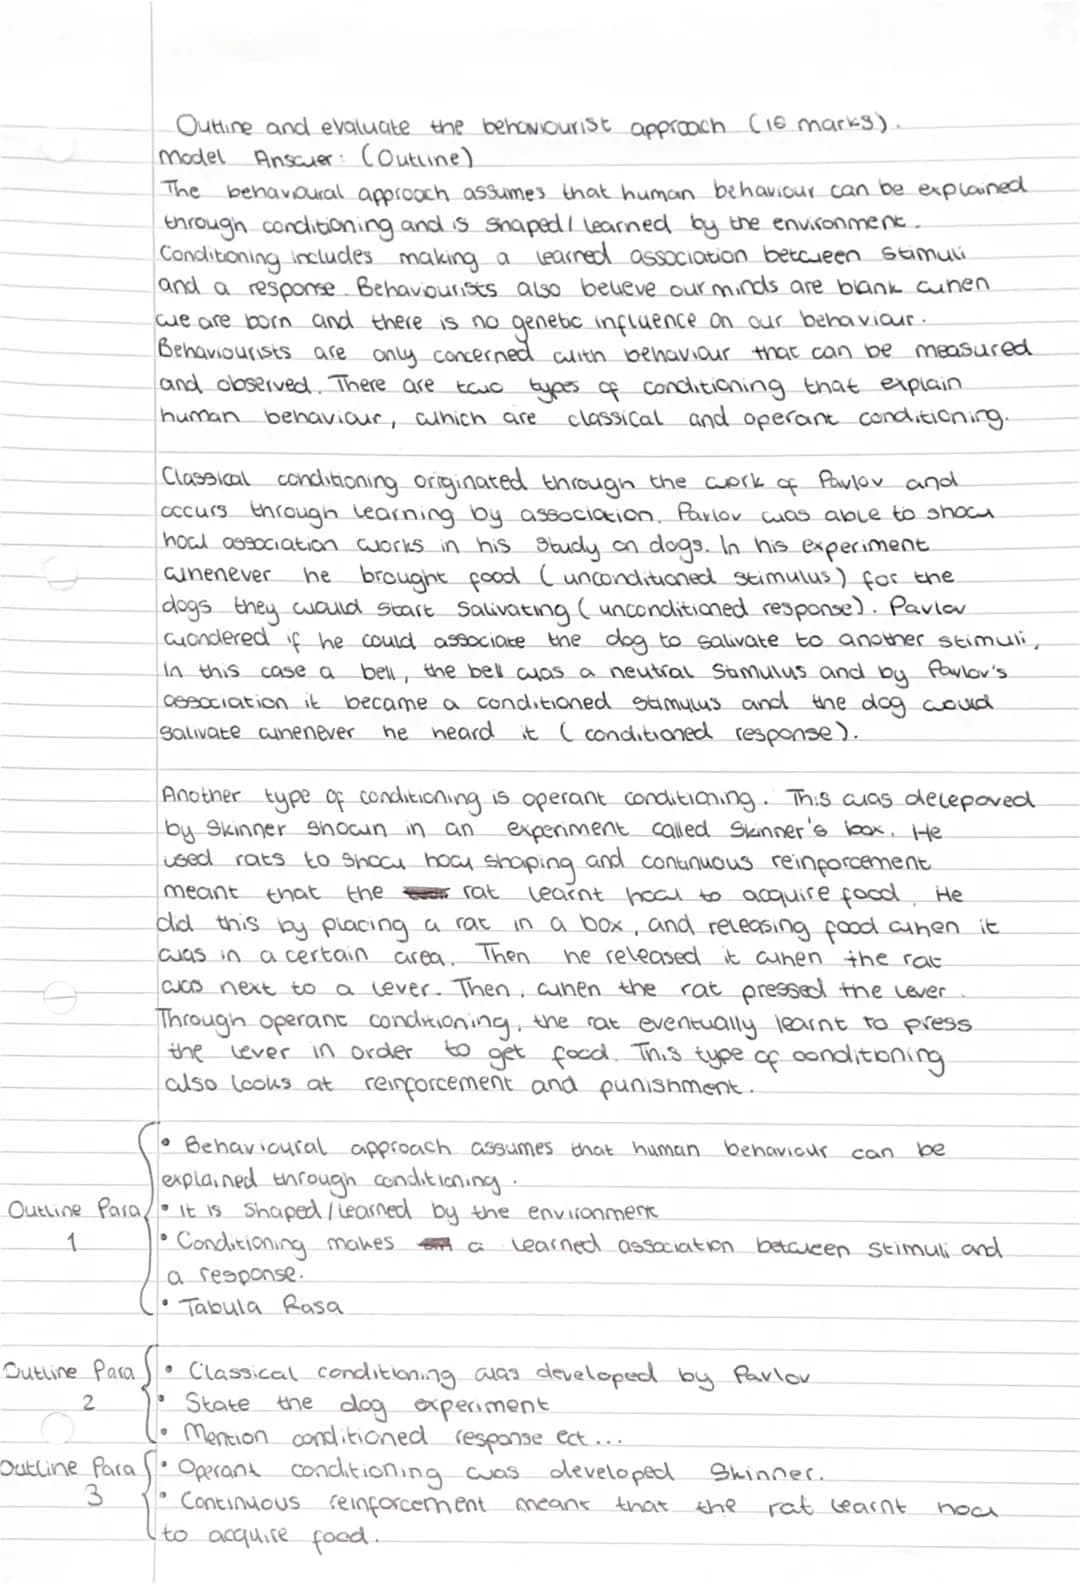 Outline and evaluate the behaviourist approach (16 marks).
Model Answer: (Outline)
The behavioural approach assumes that human behaviour can be explained
through conditioning and is shaped/learned by the environment.
Conditioning includes making a learned association between stimuli
and a response. Behaviourists also believe our minds are blank when
we are born and there is no genetic influence on our behaviour.
Behaviourists are only concerned with behaviour that can be measured
and observed. There are two types of conditioning that explain
human behaviour, which are classical and operant conditioning.
Classical conditioning originated through the work of Pavlov and
occurs through learning by association. Pavlov was able to show
how association works in his study on dogs. In his experiment
whenever he brought food (unconditioned stimulus) for the
dogs they would start salivating (unconditioned response). Pavlov
wondered if he could associate the dog to salivate to another stimuli,
in this case a bell, the bell was a neutral stimulus and by Pavlov's
association it became a conditioned stimulus and the dog would
salivate whenever he heard it (conditioned response).
Another type of conditioning is operant conditioning. This was delepoved
by Skinner shown in an experiment called Skinner's box. He
used rats to show how shaping and continuous reinforcement
meant that the rat learnt how to acquire food. He
did this by placing a rat in a box, and releasing food when it
was in a certain area. Then he released it when the rat
was next to a lever. Then, when the rat pressed the lever.
Through operant conditioning, the rat eventually learnt to press
the lever in order to get food. This type of conditioning
also looks at reinforcement and punishment.
• Behavioural approach assumes that human behaviour can be
explained through conditioning.
Outline Para • it is shaped/learned by the environment
1 • Conditioning makes a learned association between stimuli and
a response.
• Tabula Rasa
Outline Para • Classical conditioning was developed by Pavlov
2 • State the dog experiment
• Mention conditioned response ect...
Outline Para • Operant conditioning was developed Skinner.
3 • Continuous reinforcement meant that the rat learnt how
to acquire food.